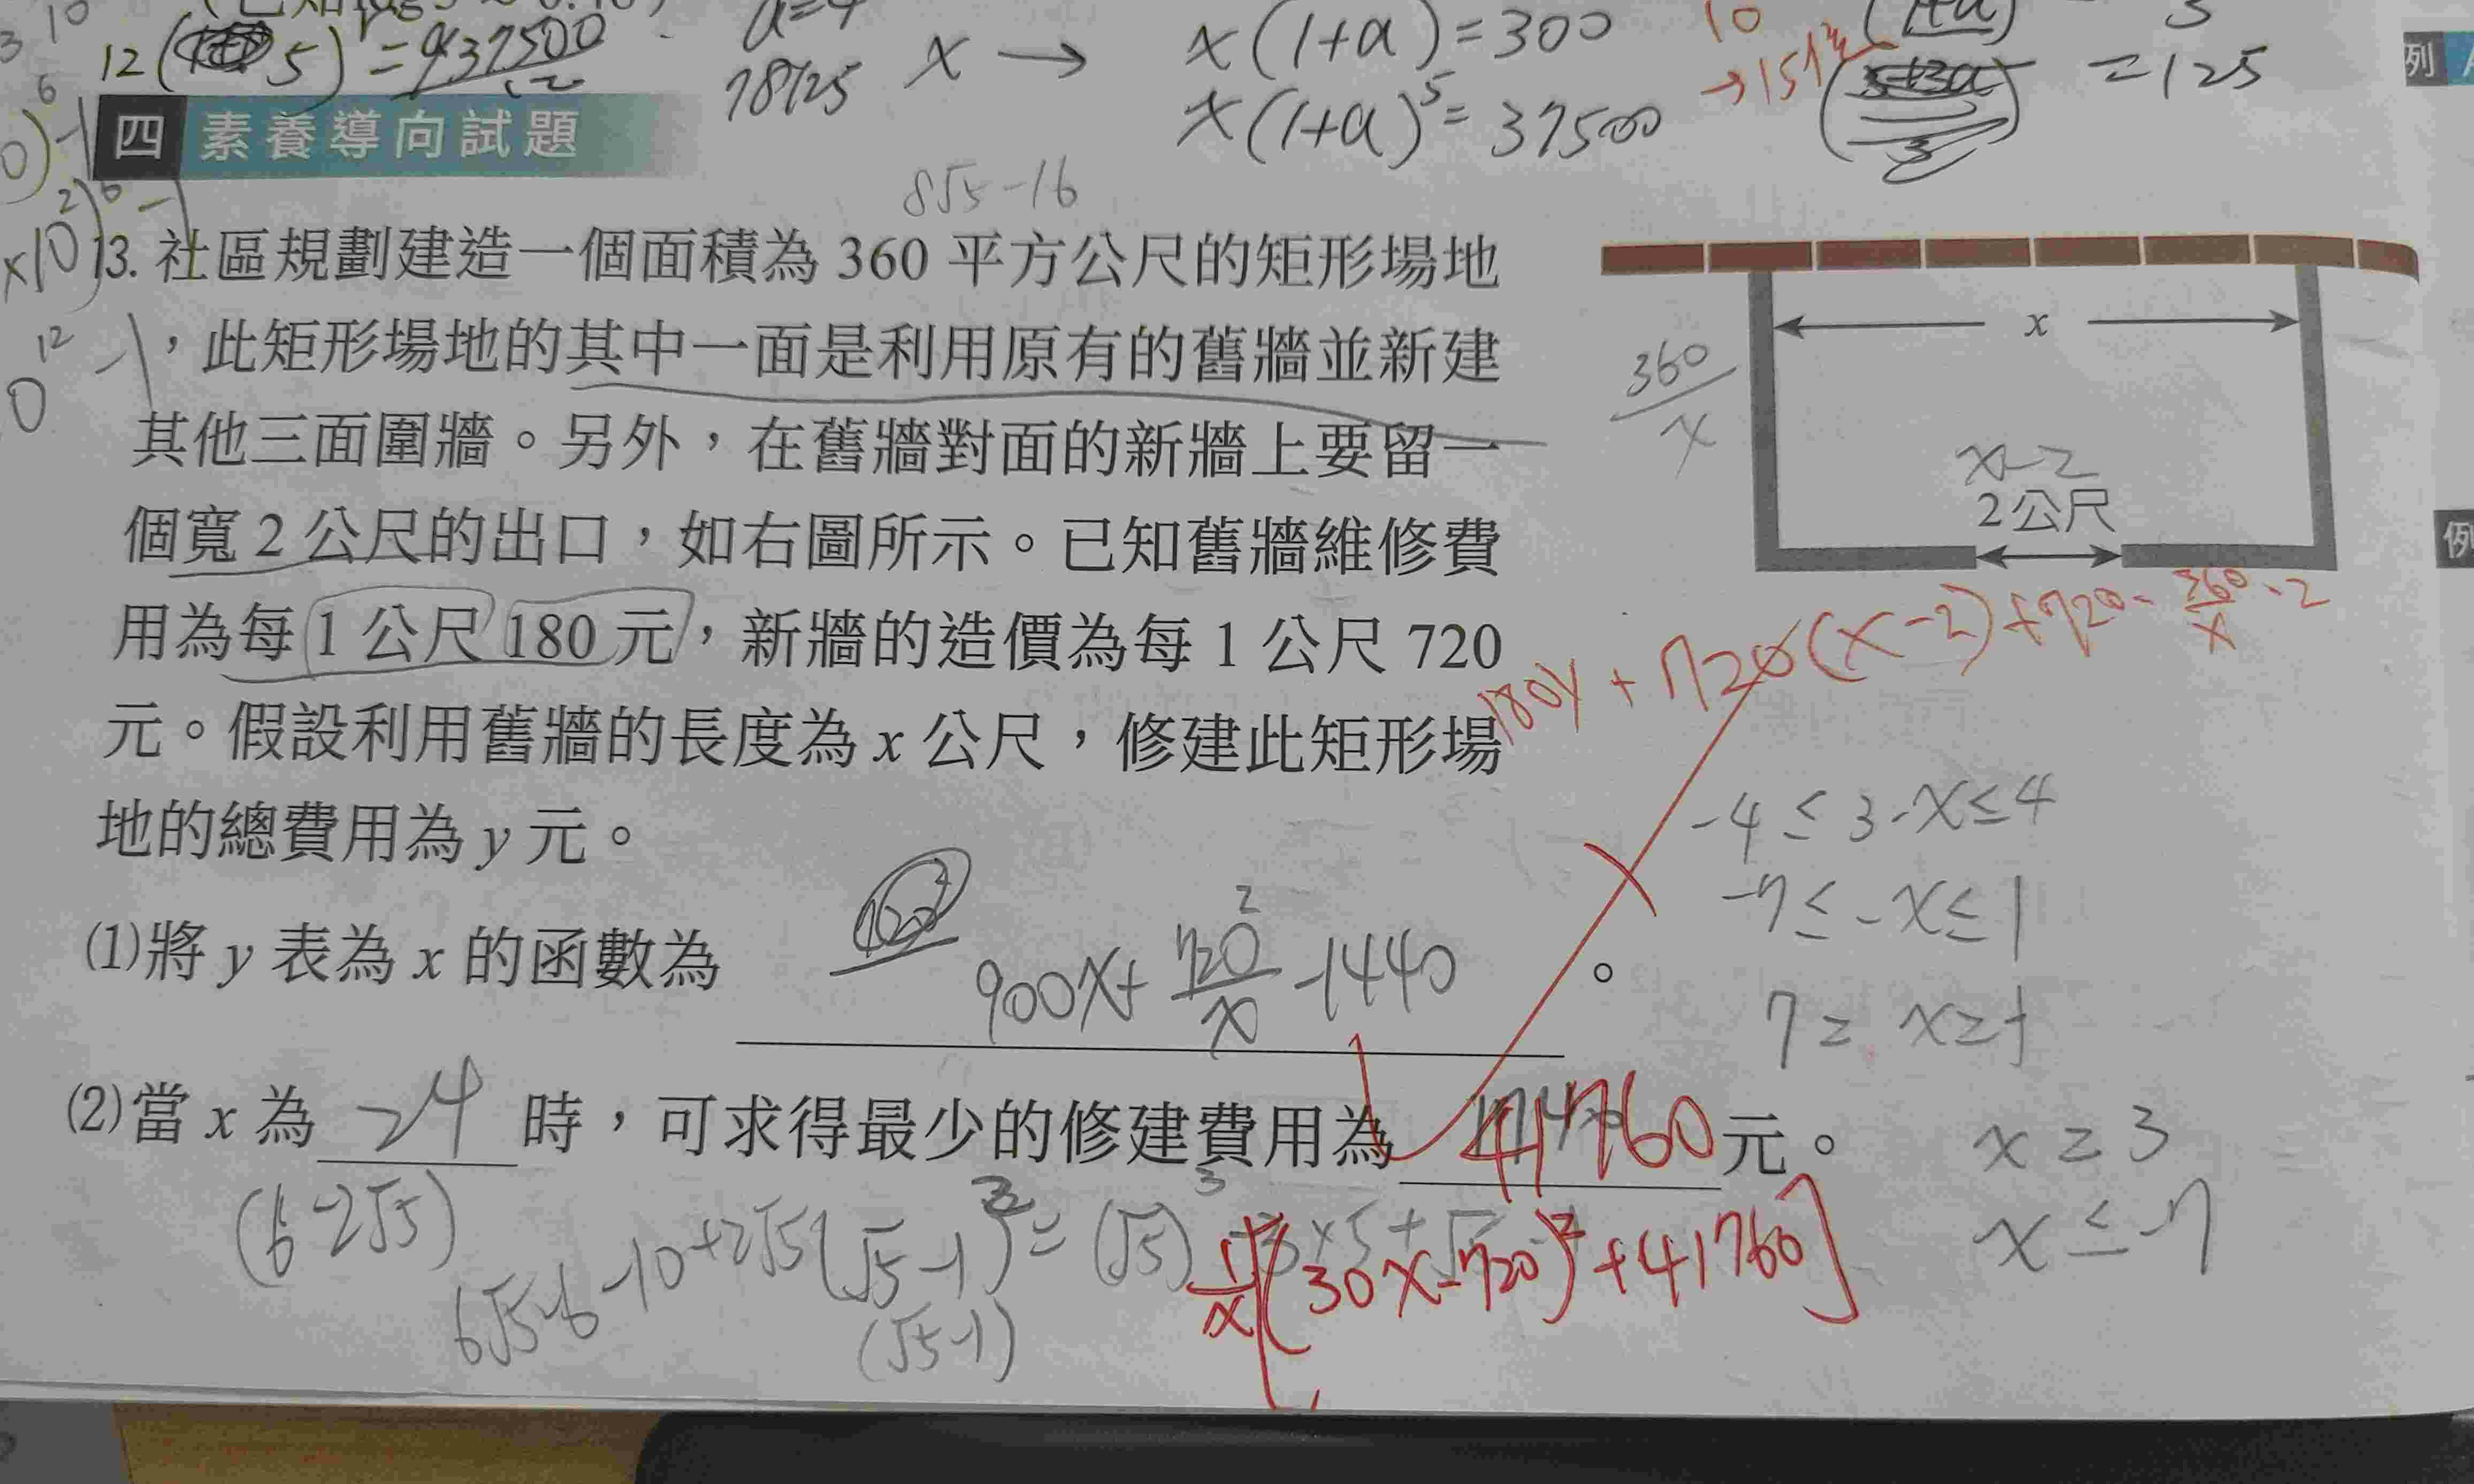 12( 5) = 937500
12
a=4
78125
x → x(1+a)=300
x(1+a)⁵=37500
10
=125
列
四 素養導向試題
8√5-16
13. 社區規劃建造一個面積為 360 平方公尺的矩形場地
，此矩形場地的其中一面是利用原有的舊牆並新建
其他三面圍牆。另外，在舊牆對面的新牆上要留一
個寬 2 公尺的出口，如右圖所示。已知舊牆維修費
用為每 1 公尺 180 元，新牆的造價為每 1 公尺 720
元。假設利用舊牆的長度為 x 公尺，修建此矩形場
地的總費用為 y 元。
x
360/x
x-2
2公尺
例
180x + 720(x-2)+720·360/x·2
-4 ≤ 3-x ≤ 4
-7 ≤ -x ≤ 1
7 ≥ x ≥ -1
x ≥ 3
x ≤ -7
(1)將 y 表為 x 的函數為 900x+ 720²/x -1440 。
(2)當 x 為 24 時，可求得最少的修建費用為 41760 元。
(6-2√5)
6√5-6-10+2√5
(√5-1)³= (√5)³
(√5-1)
1/x[(30x-720)²+41760]